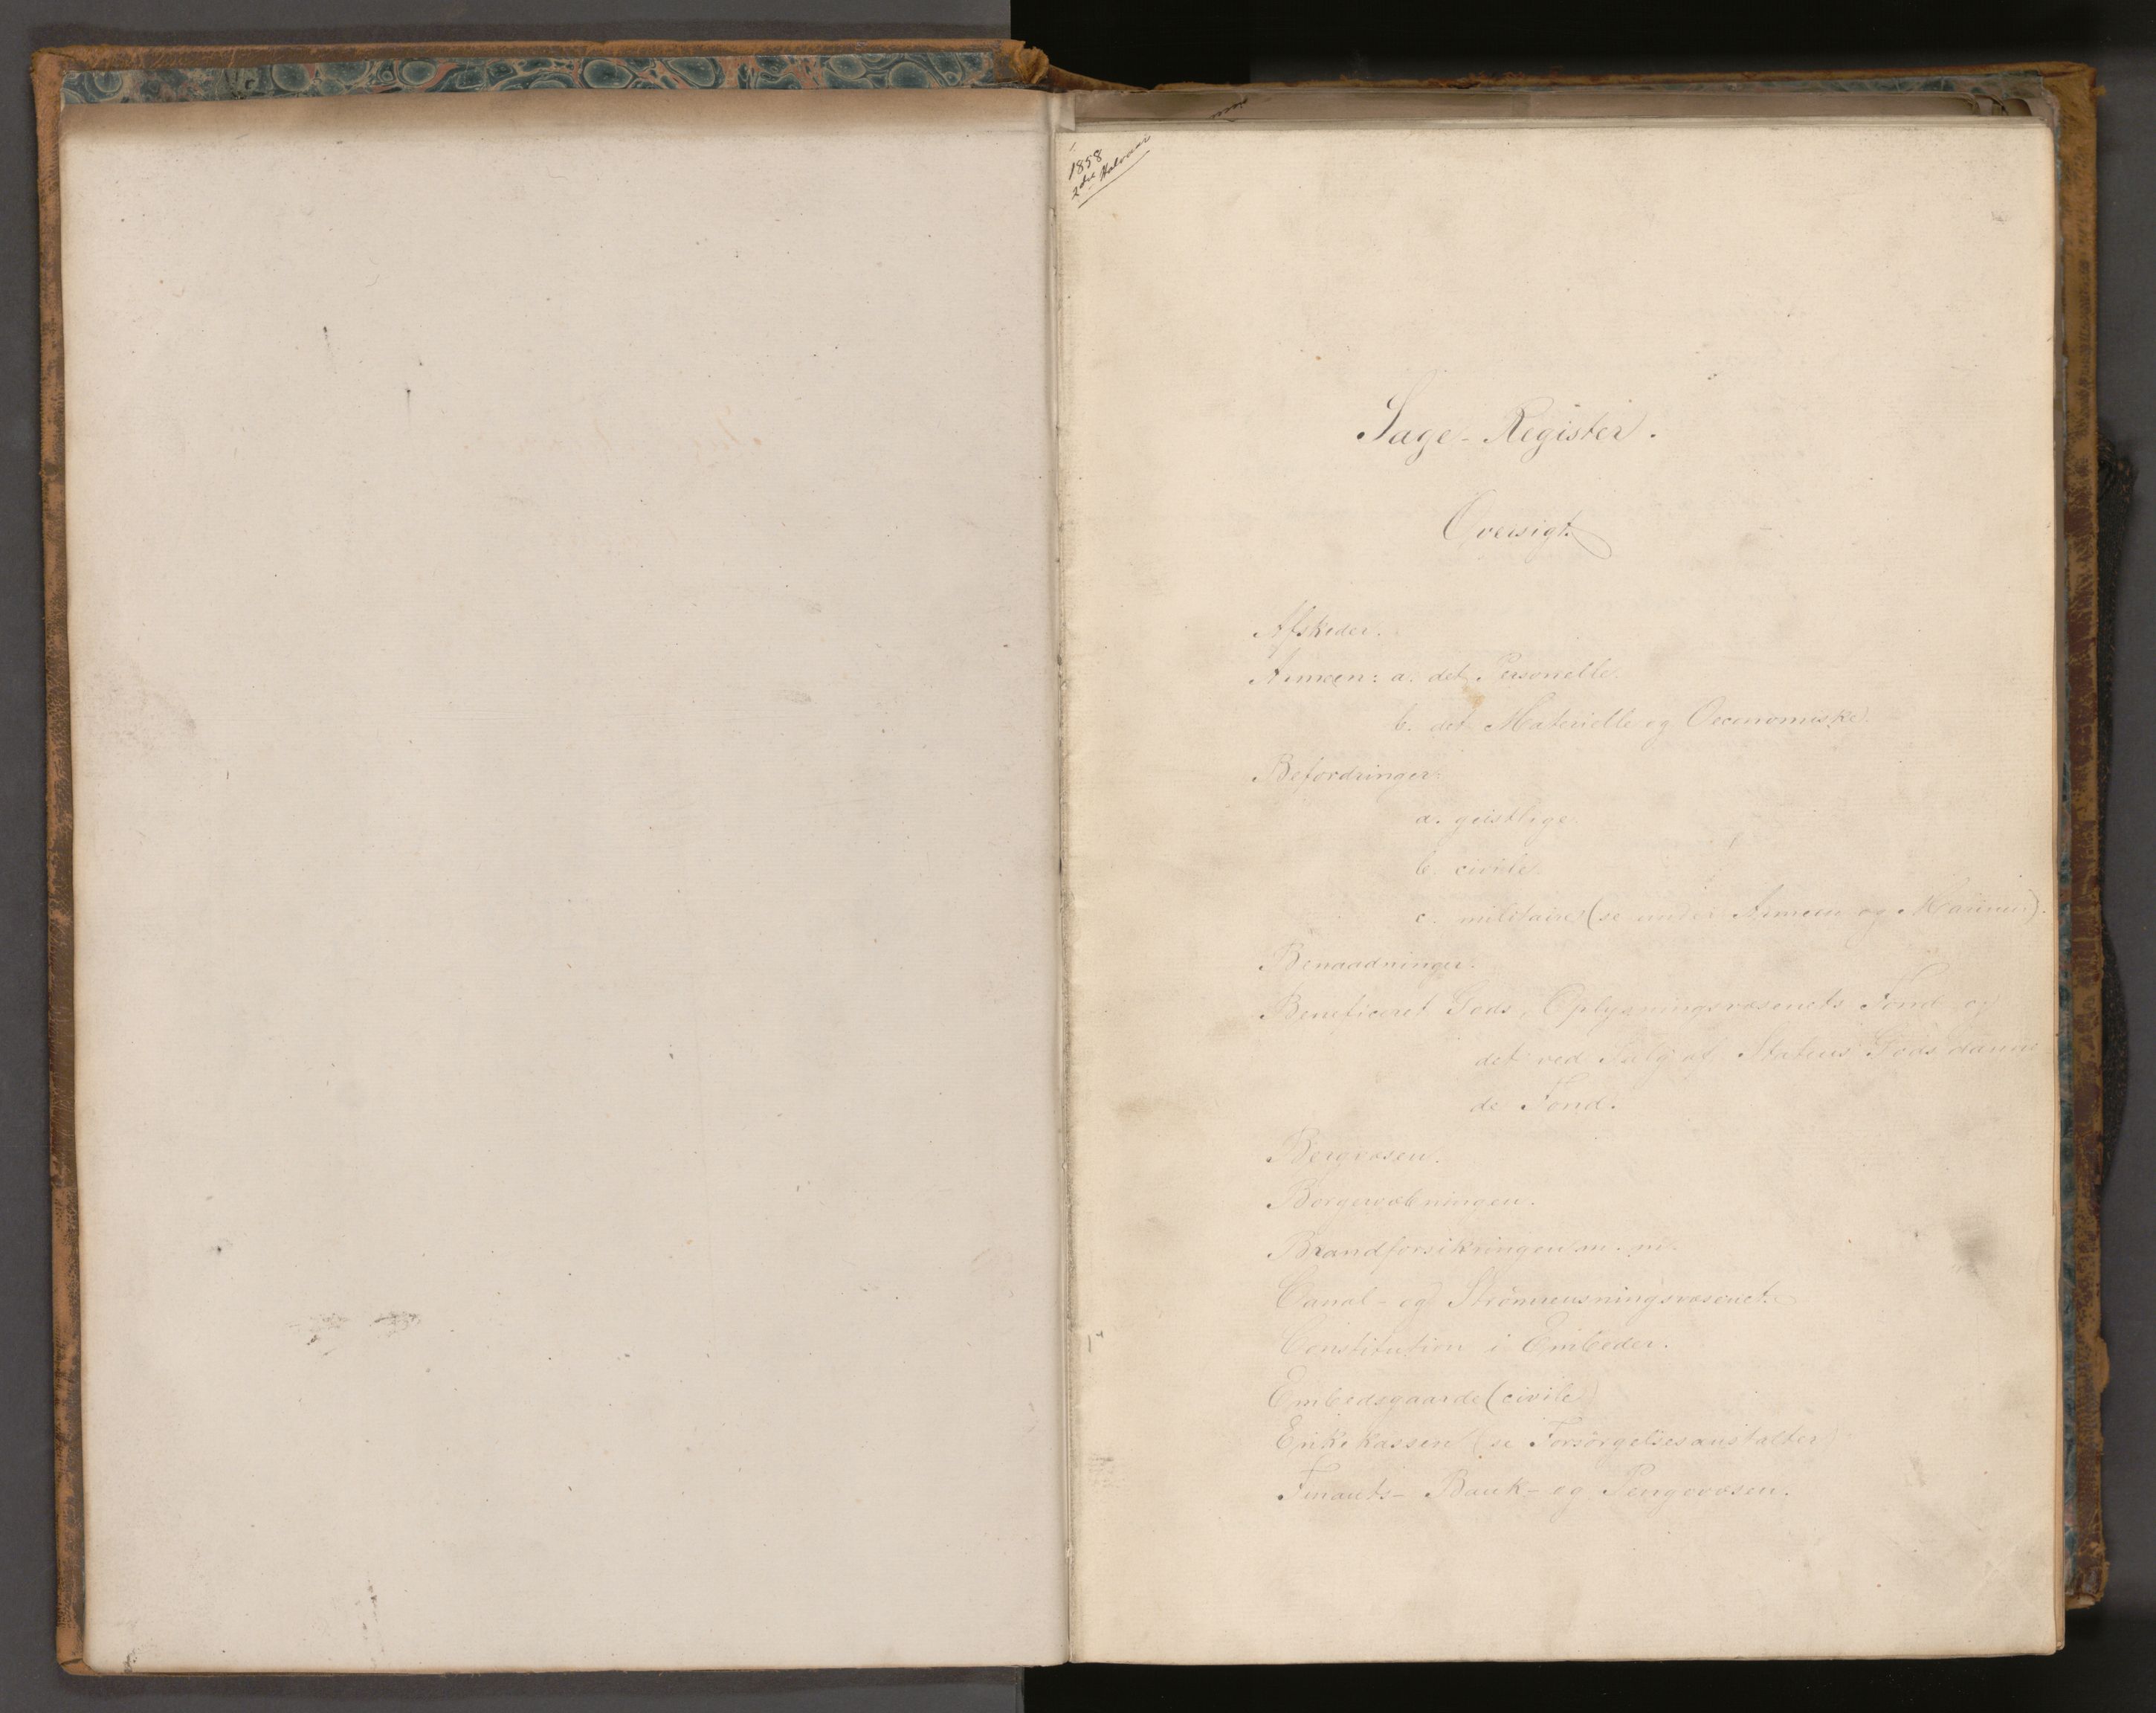 1858
2det Halvaar
Sage-Register.
Oversigt.
Afskeder.
Armeen: a. det Personelle.
b. det Materielle og Oeconomiske.
Befordringer:
a. geistlige.
b. civile.
c. militaire (se under Armeen og Marinen).
Benaadninger.
Beneficeret Gods, Oplysningsvæsenets Fond og
det ved Salg af Statens Gods danne
de Fond.
Bergvæsen.
Borgervæbningen.
Brandforsikringen m. m.
Canal- og Strömrensningsvæsenet.
Constitution i Embeder.
Embedsgaarde (civile)
Enkekassen (se Forsörgelsesanstalter)
Finants- Bank- og Pengevæsen.